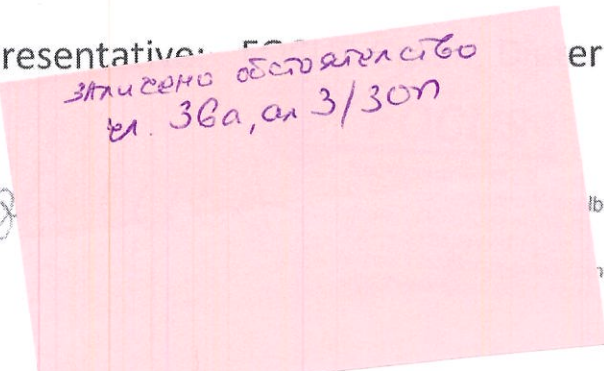 resentative: er
заличено обстоятелство
чл. 36а, ал 3/ЗОП
lb